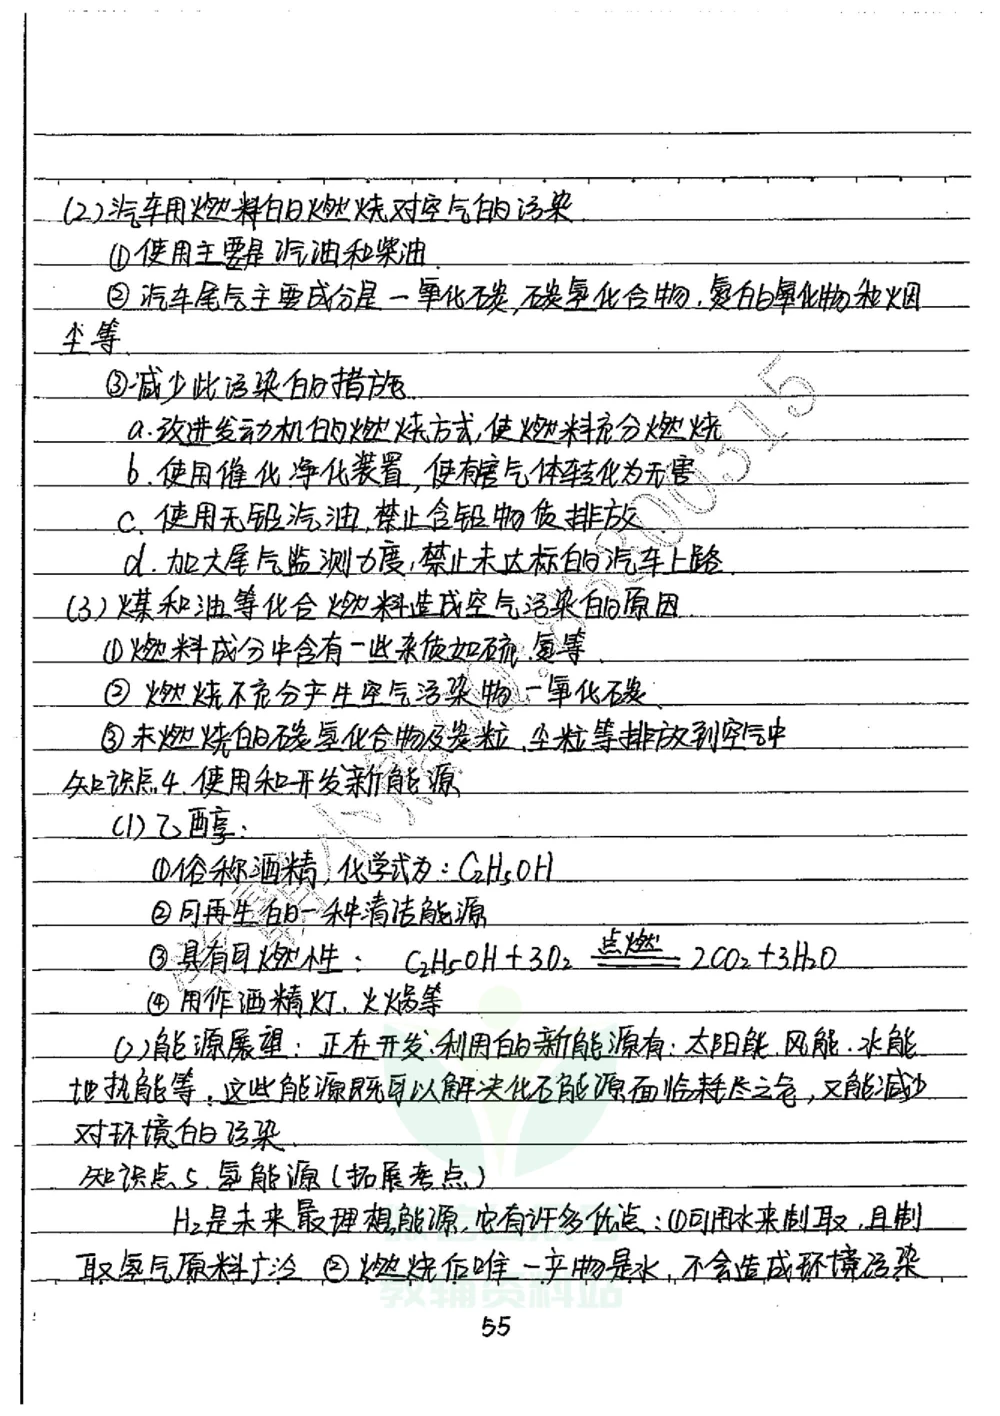 (2)汽车用燃料的燃烧对空气的污染
①使用主要是汽油和柴油
②汽车尾气主要成分是一氧化碳,碳氢化合物、氮的氧化物和烟
尘等
③减少此污染的措施
a.改进发动机的燃烧方式,使燃料充分燃烧
b.使用催化净化装置,使有害气体转化为无害
c.使用无铅汽油,禁止含铅物质排放
d.加大尾气监测力度,禁止未达标的汽车上路
(3)煤和油等化合燃料造成空气污染的原因
①燃料成分中含有一些杂质如硫、氮等
②燃烧不充分产生空气污染物一氧化碳
③未燃烧的碳氢化合物及炭粒、尘粒等排放到空气中
知识点4.使用和开发新能源
(1)乙醇:
①俗称酒精,化学式为:C₂H₅OH
②可再生的一种清洁能源
③具有可燃性: C₂H₅OH+3O₂ 点燃 2CO₂+3H₂O
④用作酒精灯、火锅等
(2)能源展望:正在开发、利用的新能源有:太阳能、风能、水能
地热能等,这些能源既可以解决化石能源面临耗尽之危,又能减少
对环境的污染
知识点5.氢能源(拓展考点)
H₂是未来最理想能源,它有许多优点:①可用水来制取,且制
取氢气原料广泛 ②燃烧后唯一产物是水,不会造成环境污染
教辅资料站
55